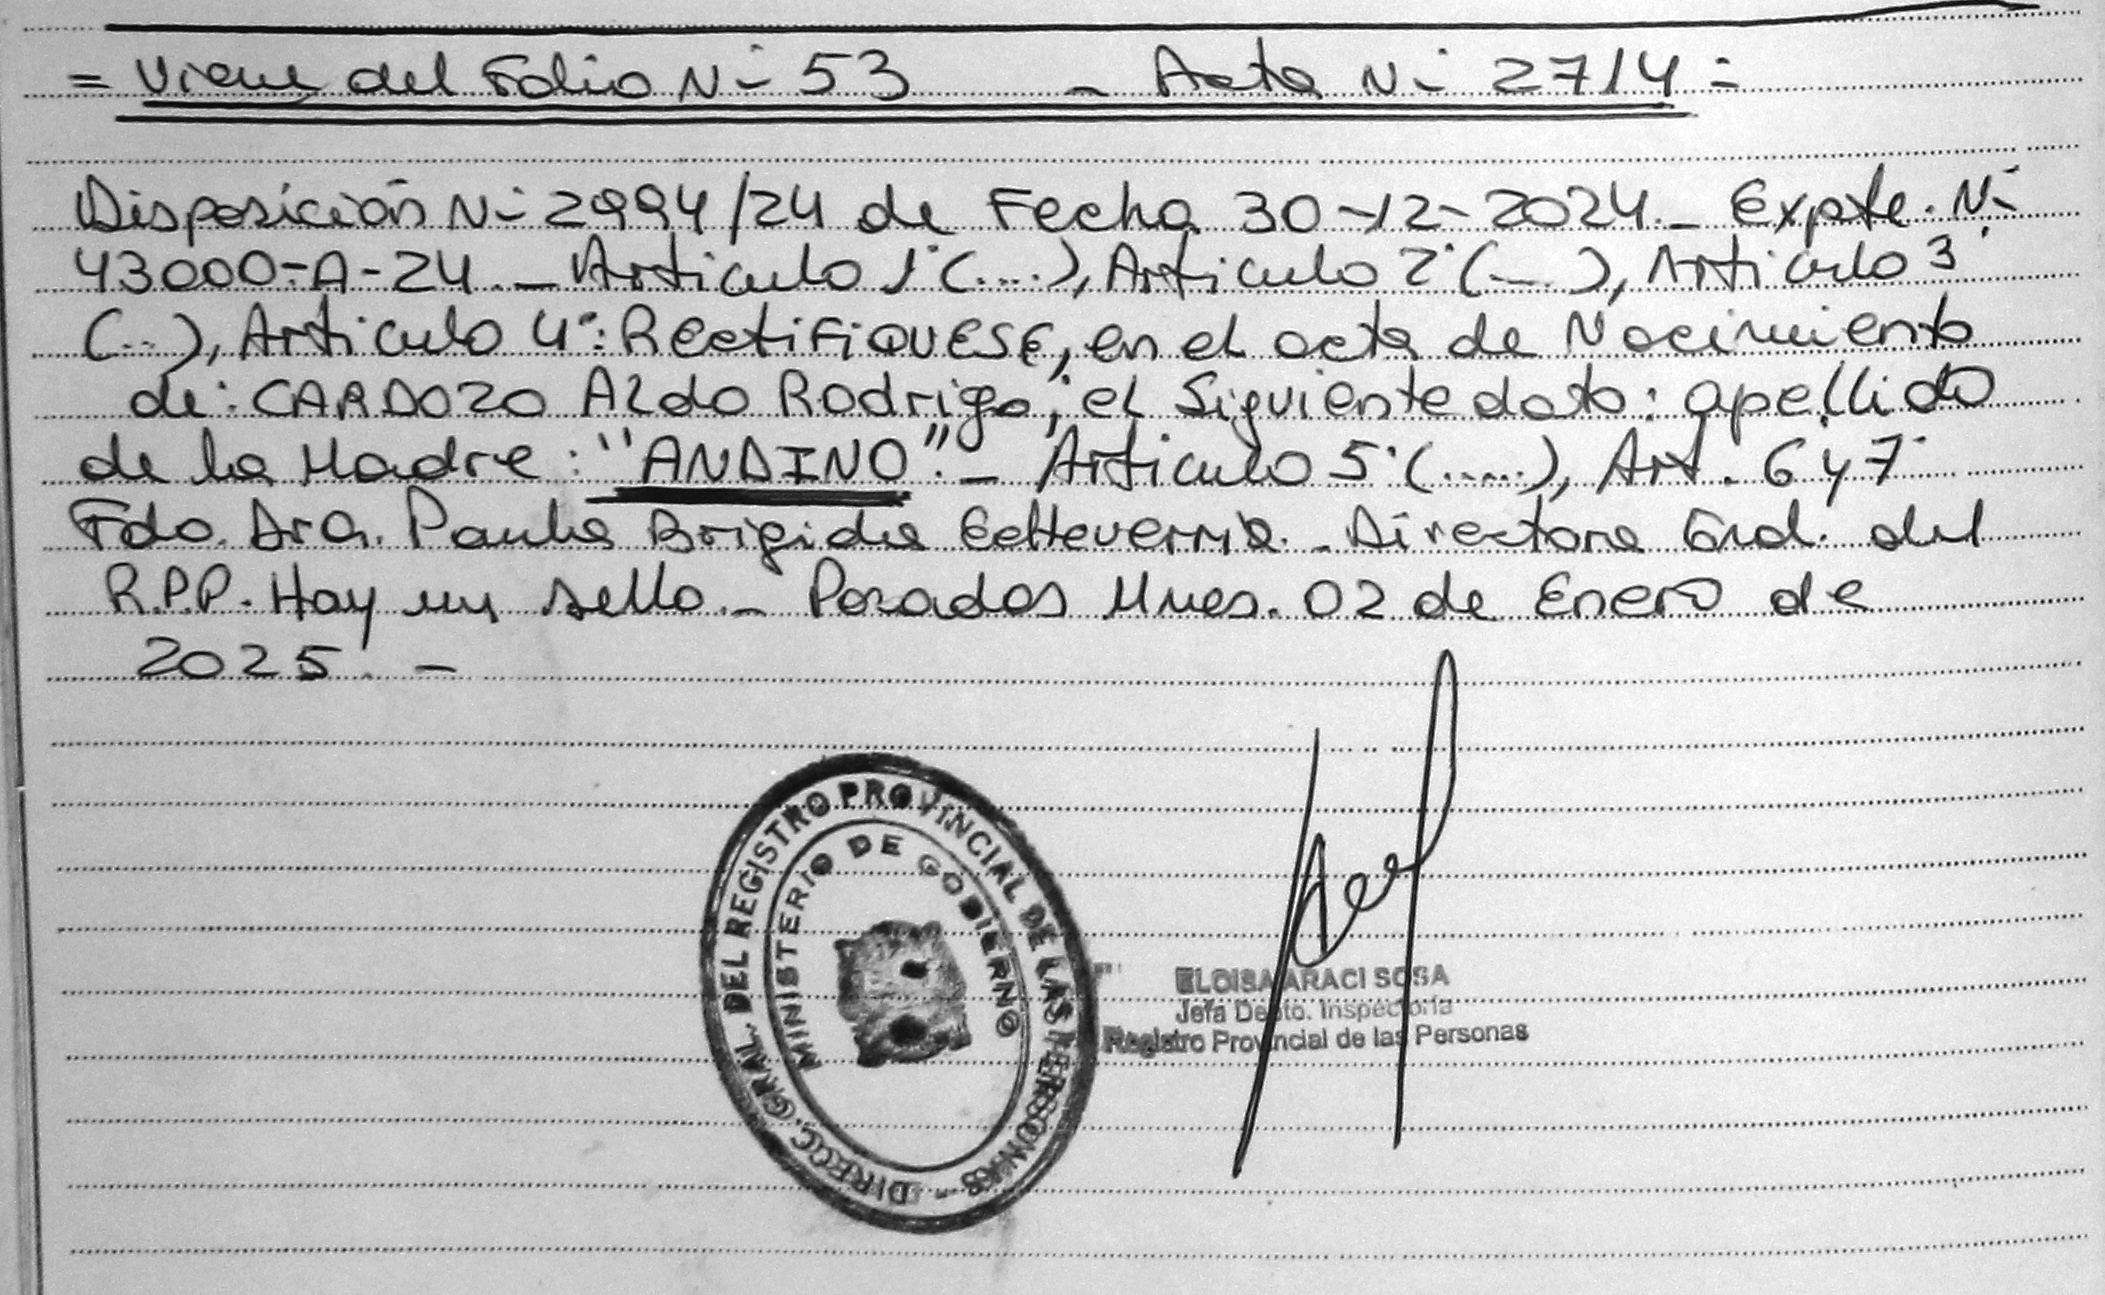 = Viene del Folio N° 53 - Acta N° 2714 =
Disposición N° 2994/24 de Fecha 30-12-2024._ Expte. N°
43000-A-24._ Articulo 1° (....), Articulo 2° (...), Articulo 3°
(...), Articulo 4°: RectiFiQUESE, en el acta de Nacimiento
de: CARDOZO Aldo Rodrigo, el Siguiente dato: apellido
de la Madre: "ANDINO"._ Articulo 5° (.....), Art. 6 y 7°
Fdo. Dra. Paula Brigida Echeverria._ Directora Gral. del
R.P.P. Hay un sello._ Posadas Mnes. 02 de Enero de
2025. -
DIRECC. GRAL. DEL REGISTRO PROVINCIAL DE LAS PERSONAS -
MINISTERIO DE GOBIERNO
ELOISA ARACI SOSA
Jefa Depto. Inspectoria
Registro Provincial de las Personas